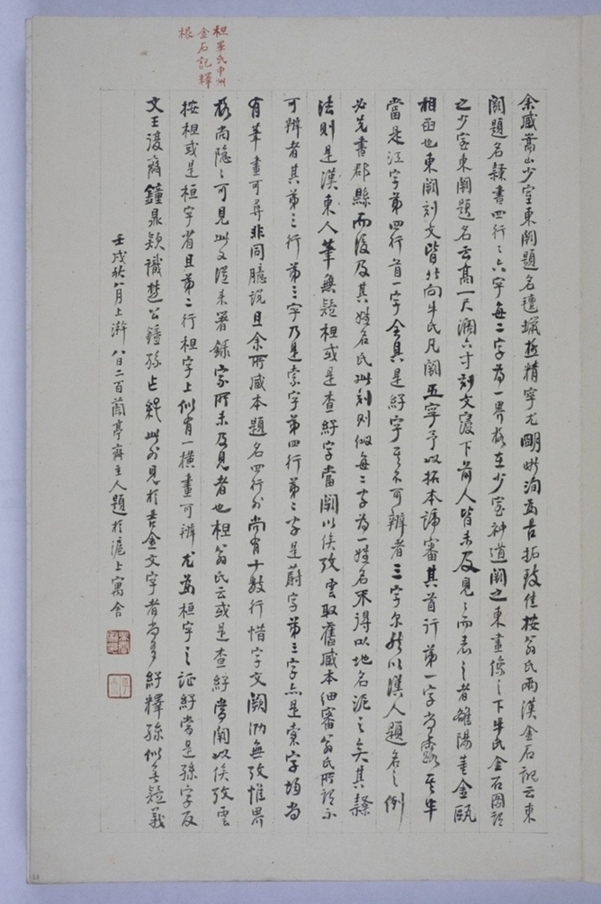 余藏嵩山少室東闕題名氊蠟極精字尤明晰洵為古拓致佳按翁氏兩漢金石記云東
闕題名隸書四行行六字每二字為一界格在少室神道闕之東畫像之下牛氏金石圖說
之少室東闕題名云高一尺濶六寸刻文寔下前人皆未及見見而表之者雒陽董金甌
相函也東闕刻文皆北向牛氏凡闕五字予以拓本諦審其首行第一字當其牛
當是江字第四行首一字會其是紵字其不可辨者三字尔然以漢人題名之例
必先書郡縣而後及其姓名氏此刻則似每二字為一姓名不得以地名泥之矣其隸
法則是漢東人筆無疑柤或是查紵字當闕以俟攷雲取舊藏本細審翁氏所謂不
可辨者其第三行第三字乃是索字第四行第二字是蔚字第三字亦是寔字均尚
有筆畫可尋非同臆說且余所藏本題名四行外尚有十數行惜字文闕泐無攷惟界
格尚隱隱可見此又從來著錄家所未及見者也柤翁氏云或是查紵當闕以俟攷雲
按柤或是桓字省且第二行柤字上似有一橫畫可辨尤為桓字之証紵當是孫字反
文王復齋鐘鼎款識楚公鐘孫作此外見於吉金文字者尚多紵釋孫似無疑義
壬戌秋八月上澣八日二百蘭亭齋主人題於滬上寓舍
柤畢氏中州
金石記釋
根